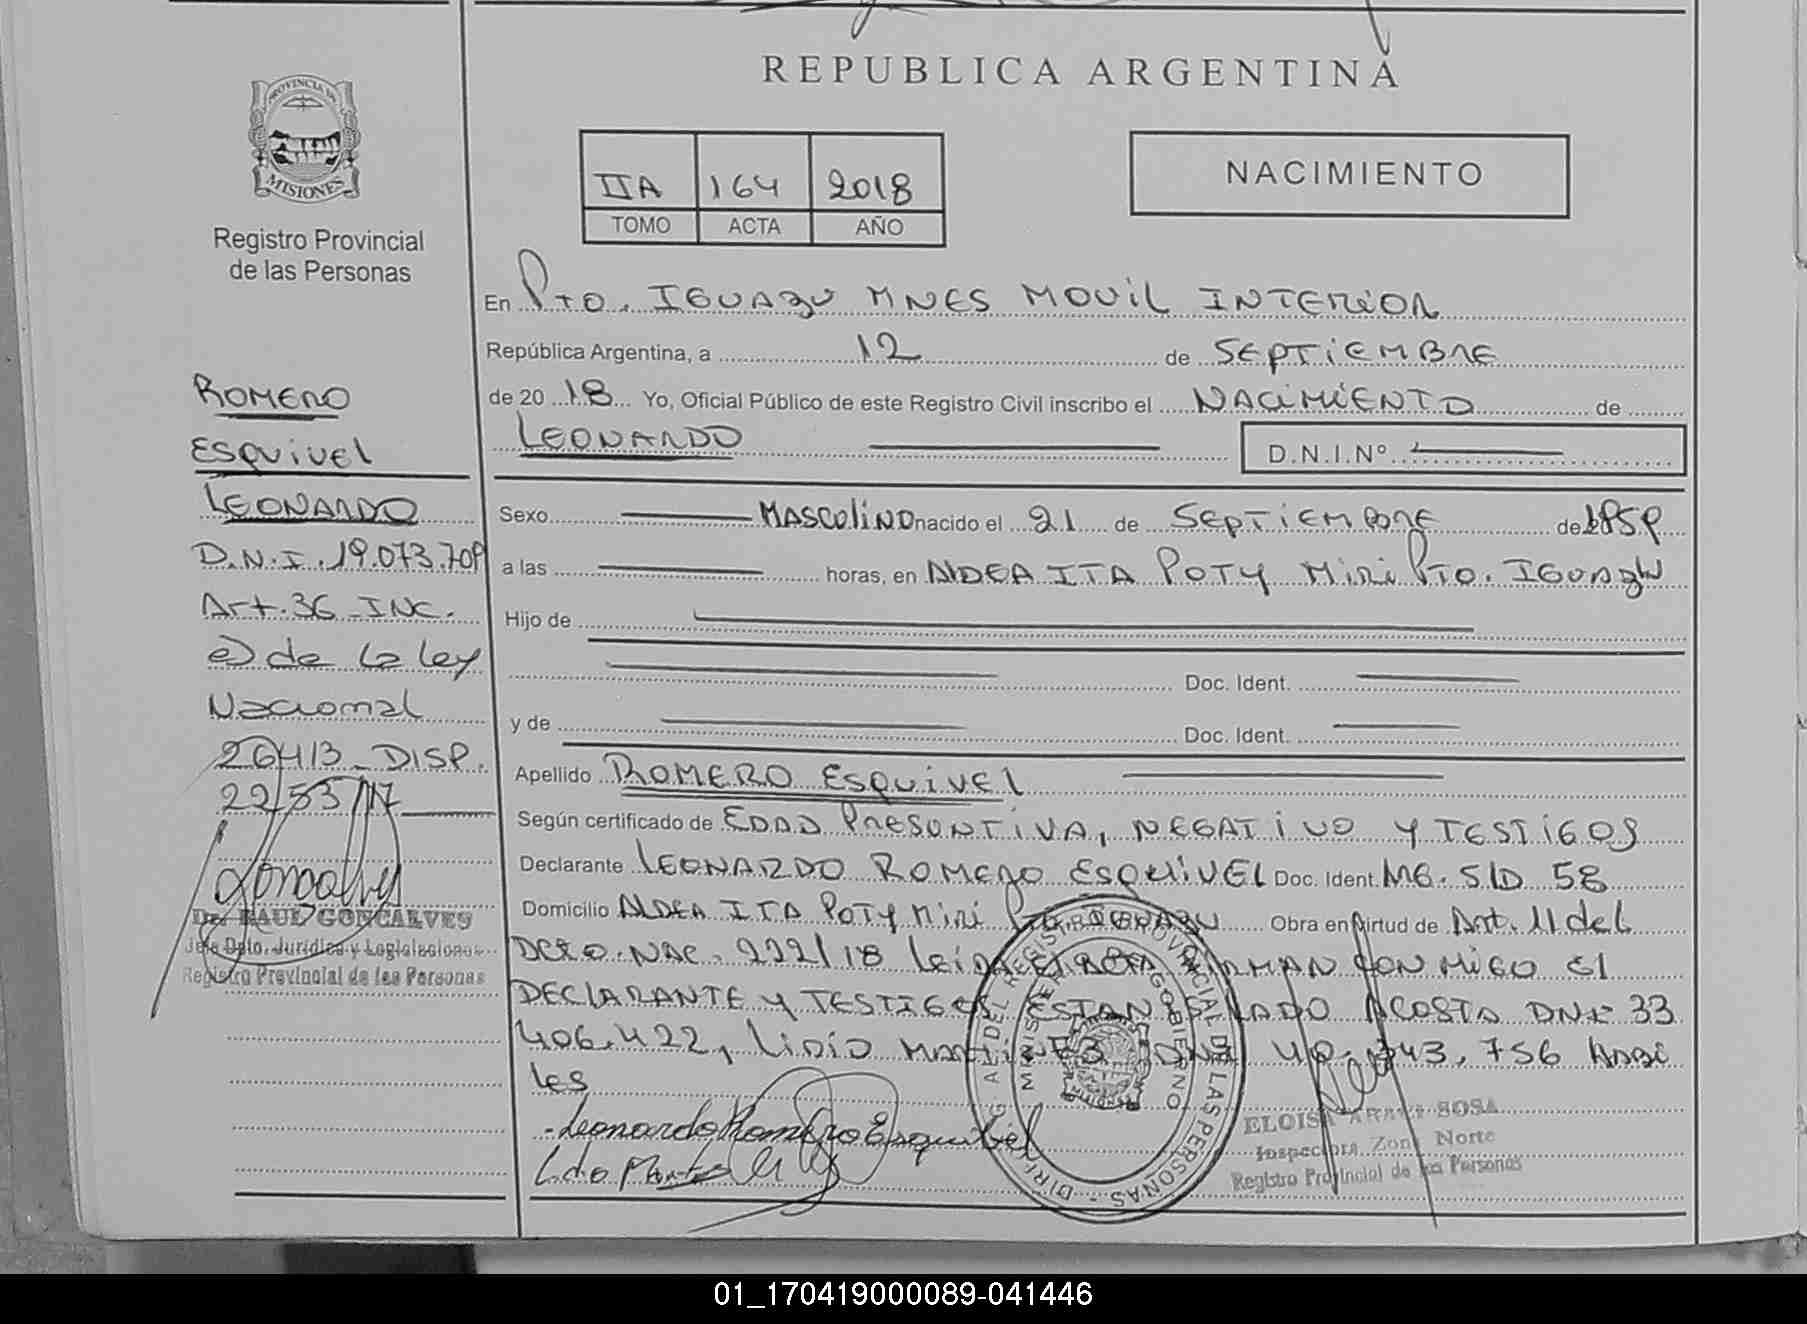 REPUBLICA ARGENTINA
PROVINCIA DE
MISIONES
Registro Provincial
de las Personas
IIA 164 2018
TOMO ACTA AÑO
NACIMIENTO
En Pto. IGUAZU MNES MOVIL INTERIOR
República Argentina, a 12 de SEPTIEMBRE
de 20 18 Yo, Oficial Público de este Registro Civil inscribo el NACIMIENTO de
LEONARDO D.N.I.Nº
Sexo MASCULINO nacido el 21 de SEPTIEMBRE de
a las horas, en ALDEA ITA POTY MIRI PTO. IGUAZU
Hijo de
Doc. Ident.
y de Doc. Ident.
Apellido ROMERO ESQUIVEL
Según certificado de EDAD PRESUNTIVA, NEGATIVO Y TESTIGOS
Declarante LEONARDO ROMERO ESQUIVEL Doc. Ident. MG. SID 58
Domicilio ALDEA ITA POTY MIRI PTO. IGUAZU Obra en virtud de Art. 11 del
DCTO. NAC. 222/18 leida el acta FIRMAN CON MIGO El
DECLARANTE Y TESTIGOS ESTANISLADO ACOSTA DNI 33
406.422, Lidio MARTINEZ DNI 743.756 Habi
les
Leonardo Romero Esquibel
ROMERO
ESQUIVEL
LEONARDO
D.N.I. 19.073.709
Art. 36 INC.
e) de la ley
Nacional
26413 - DISP.
2253/17
Dr. RAUL GONCALVES
Jefe Dpto. Jurídico y Legislaciones
Registro Provincial de las Personas
DIR. GRAL. DEL REGISTRO PROVINCIAL DE LAS PERSONAS
MINISTERIO DE GOBIERNO
ELOISA ARACI SOSA
Inspectora Zona Norte
Registro Provincial de las Personas
01_170419000089-041446